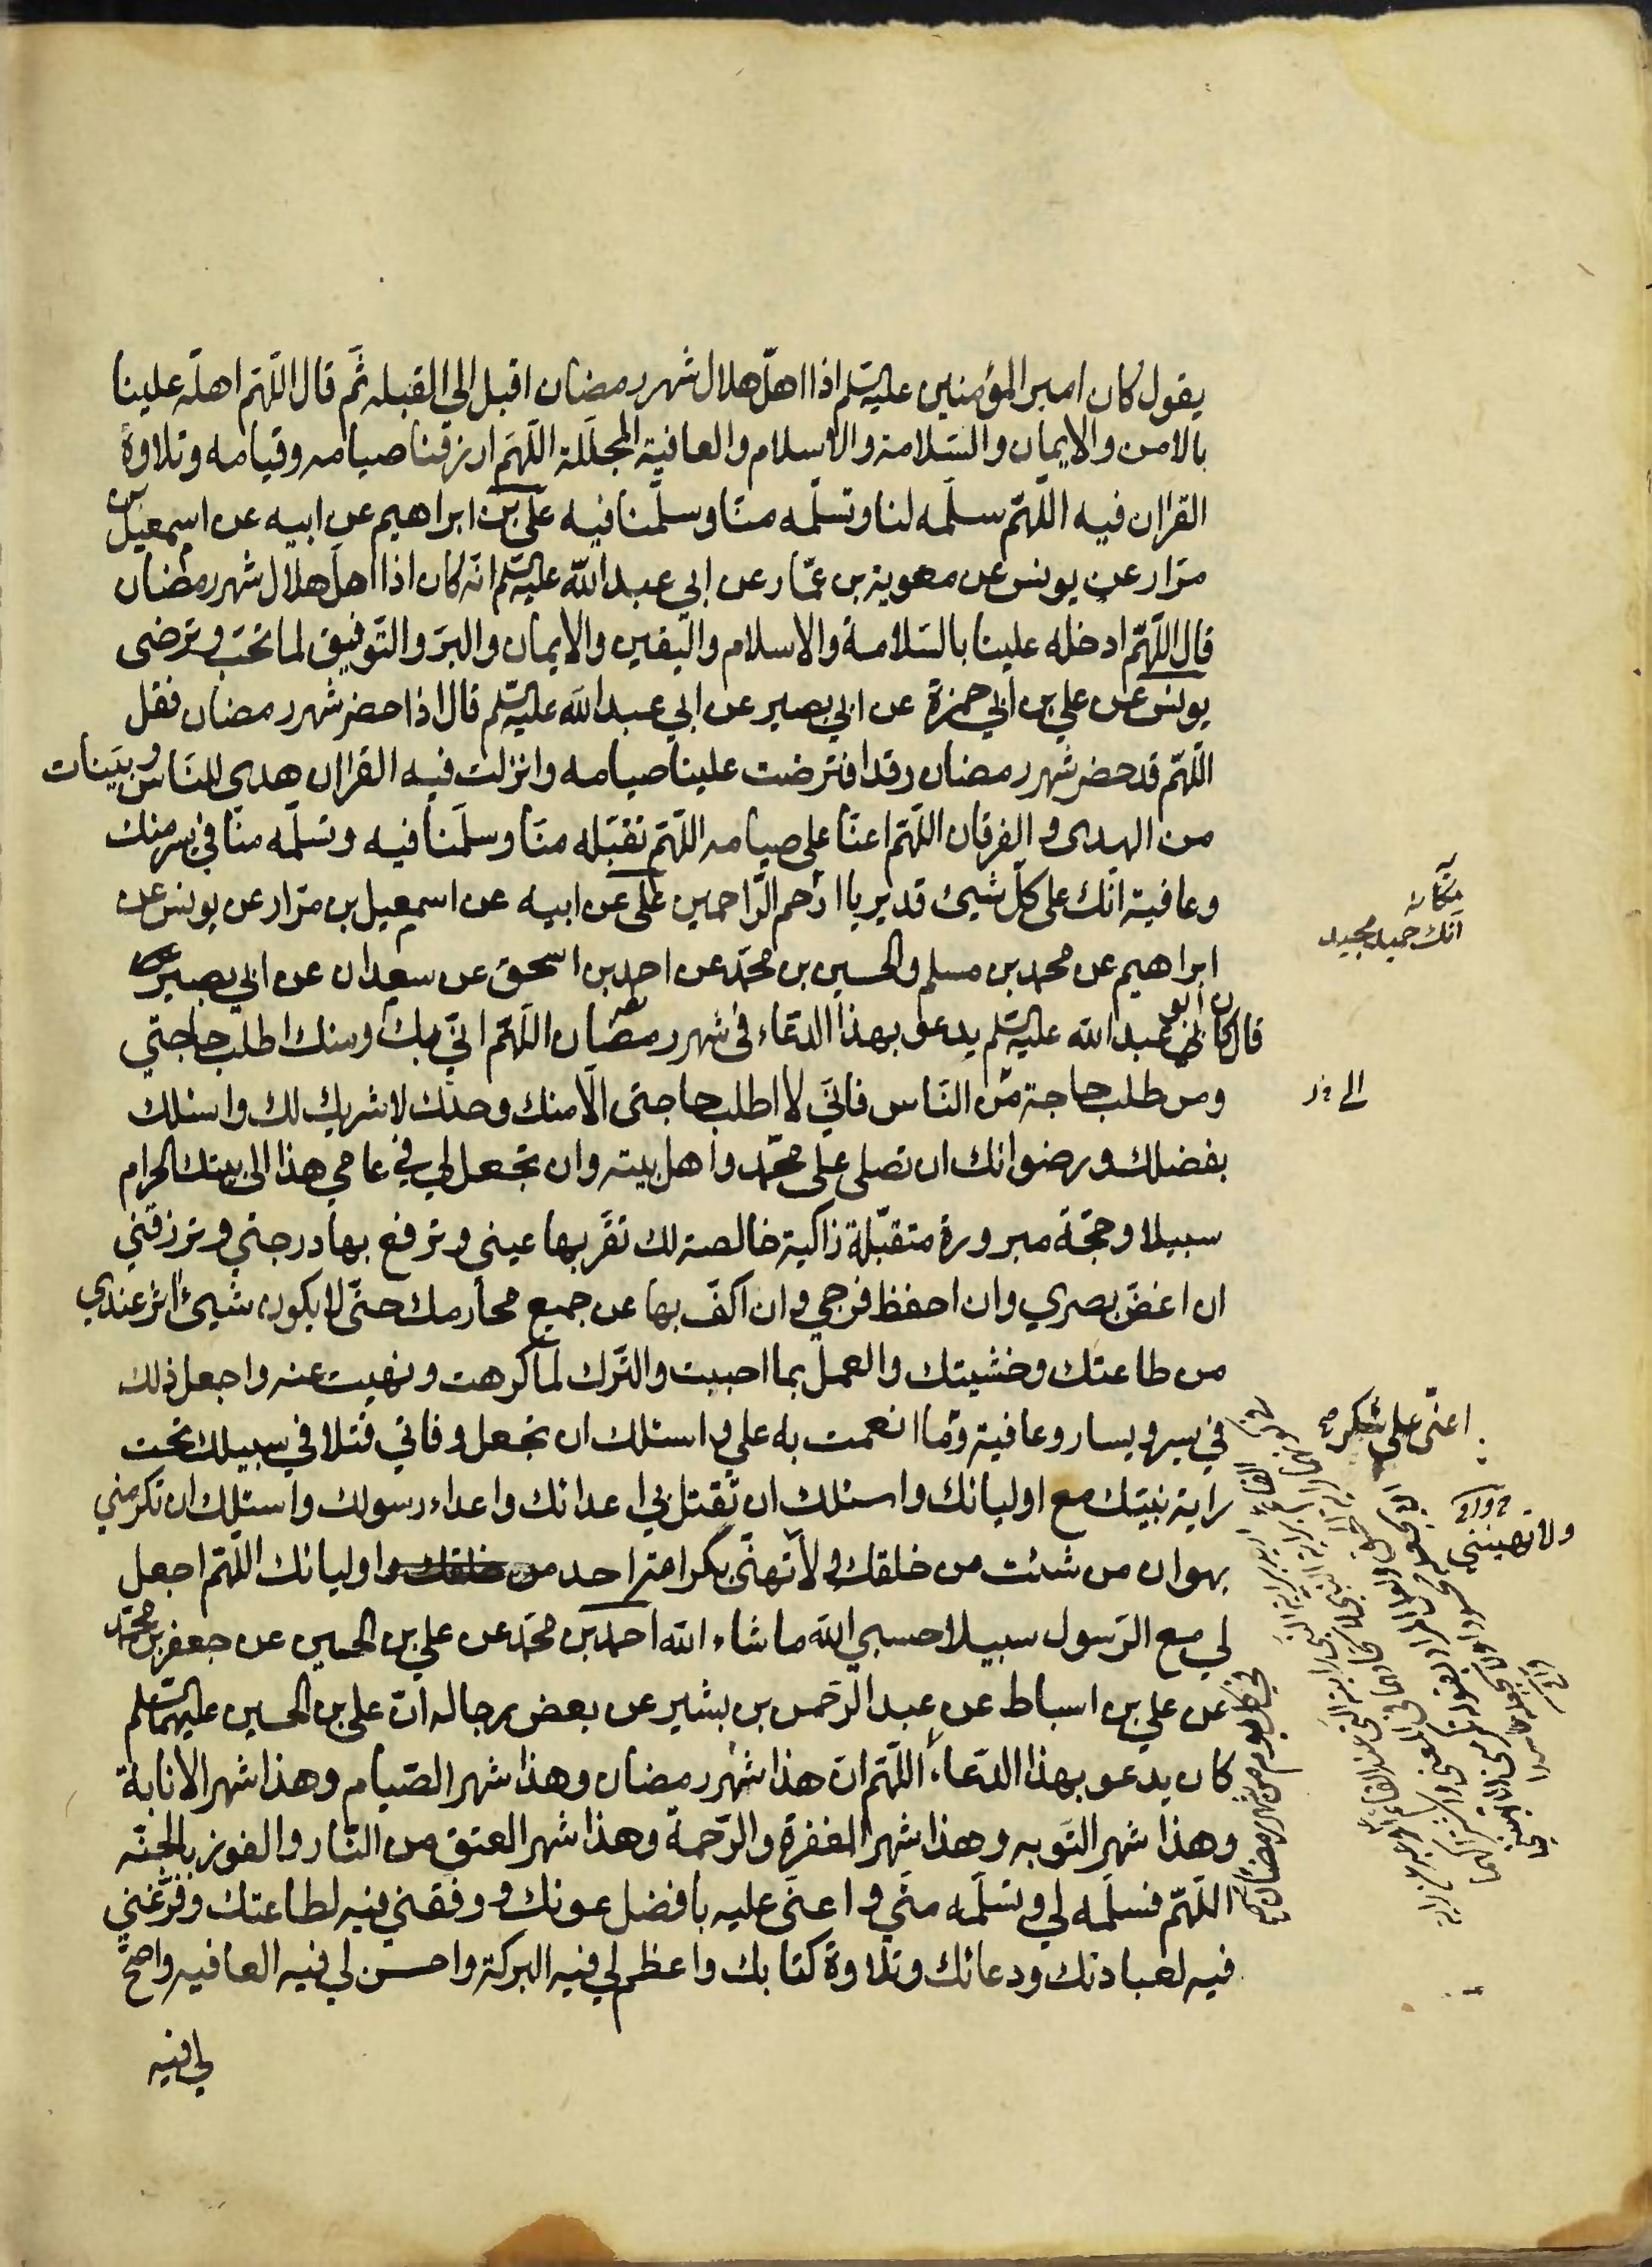 يقول كان امير المؤمنين عليه السلم اذا اهلّ هلال شهر رمضان اقبل الى القبله ثمّ قال اللّهم اهلّه علينا
بالامن والايمان والسّلامة والاسلام والعافية المجلّلة اللّهم ارزقنا صيامه وقيامه وتلاوة
القران فيه اللّهم سلّمه لنا وتسلّمه منّا وسلّمنا فيه علي بن ابراهيم عن ابيه عن اسمعيل بن
مرّار عن يونس عن معوية بن عمّار عن ابي عبد الله عليه السلم انّه كان اذا اهلّ هلال شهر رمضان
قال اللّهم ادخله علينا بالسّلامة والاسلام واليقين والايمان والبرّ والتّوفيق لما تحبّ وترضى
يونس عن علي بن ابي حمزة عن ابي بصير عن ابي عبد الله عليه السلم قال اذا حضر شهر رمضان فقل
اللّهم قد حضر شهر رمضان وقد افترضت علينا صيامه وانزلت فيه القران هدى للنّاس وبيّنات
من الهدى والفرقان اللّهم اعنّا على صيامه اللّهم تقبّله منّا وسلّمنا فيه وتسلّمه منّا في يسر منك
وعافية انّك على كلّ شيئ قدير يا ارحم الرّاحمين علي عن ابيه عن اسمعيل بن مرّار عن يونس عن
ابراهيم عن محمد بن مسلم والحسين بن محمّد عن احمد بن اسحق عن سعدان عن ابي بصير
قال كان ابو عبد الله عليه السلم يدعو بهذا الدّعاء في شهر رمضان اللّهم انّي بك ومنك اطلب حاجتي
ومن طلب حاجة من النّاس فانّي لا اطلب حاجتي الّا منك وحدك لا شريك لك واسئلك
بفضلك ورضوانك ان تصلي على محمّد واهل بيته وان تجعل لي في عامي هذا الى بيتك الحرام
سبيلا وحجّة مبرورة متقبّلة زاكية خالصة لك تقرّ بها عيني وترفع بها درجتي وترزقني
ان اغضّ بصري وان احفظ فرجي وان اكفّ بها عن جميع محارمك حتّى لا يكون شيئ اثر عندي
من طاعتك وخشيتك والعمل بما احببت والتّرك لما كرهت ونهيت عنه واجعل ذلك
في يسر ويسار وعافية وما انعمت به علي واسئلك ان تجعل وفاتي قتلا في سبيلك تحت
راية نبيّك مع اوليائك واسئلك ان تقتل بي اعدائك واعداء رسولك واسئلك ان تكرمني
بهوان من شئت من خلقك ولا تهنّي بكرامة احد من خلقك اوليائك اللّهم اجعل
لي مع الرّسول سبيلا حسبي الله ما شاء الله احمد بن محمّد عن علي بن الحسين عن جعفر بن محمّد
عن علي بن اسباط عن عبد الرّحمن بن بشير عن بعض رجاله انّ علي بن الحسين عليهما السلم
كان يدعو بهذا الدّعاء اللّهم انّ هذا شهر رمضان وهذا شهر الصّيام وهذا شهر الانابة
وهذا شهر التّوبه وهذا شهر المغفرة والرّحمة وهذا شهر العتق من النّار والفوز بالجنّه
اللّهم فسلّمه لي وتسلّمه منّي واعنّي عليه بافضل عونك ووفّقني فيه لطاعتك وفرّغني
فيه لعبادتك ودعائك وتلاوة كتابك واعظم لي فيه البركة واحسن لي فيه العافيه واصحّ
لي فيه
انّك حميد مجيد
اعنّي على شكره
ولا تهينني
في كل يوم من شهر رمضان